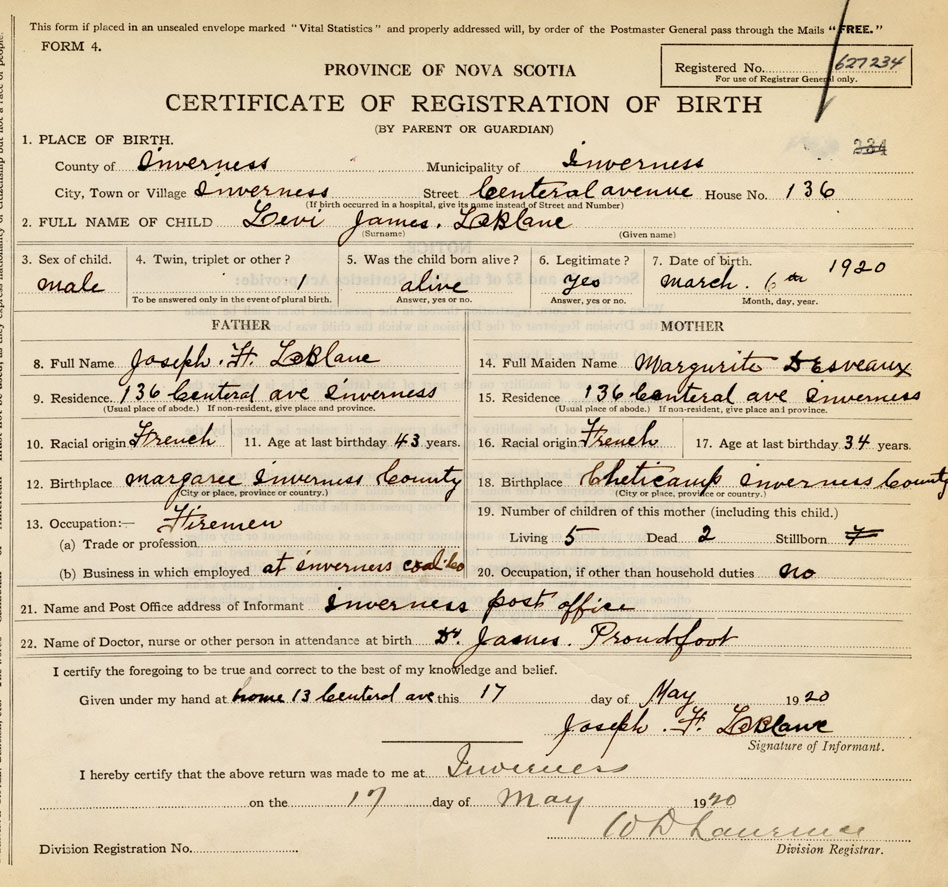 This form if placed in an unsealed envelope marked "Vital Statistics" and properly addressed will, by order of the Postmaster General pass through the Mails "FREE."
FORM 4.
Registered No. 627234
For use of Registrar General only.
PROVINCE OF NOVA SCOTIA
CERTIFICATE OF REGISTRATION OF BIRTH
(BY PARENT OR GUARDIAN)
234
1. PLACE OF BIRTH.
County of Inverness Municipality of Inverness
City, Town or Village Inverness Street Centeral avenue House No. 136
(If birth occurred in a hospital, give its name instead of Street and Number)
2. FULL NAME OF CHILD Levi James. LeBlanc
(Surname) (Given name)
3. Sex of child. 4. Twin, triplet or other? 5. Was the child born alive? 6. Legitimate? 7. Date of birth.
male 1 alive yes march. 6th 1920
To be answered only in the event of plural birth. Answer, yes or no. Answer, yes or no. Month, day, year.
FATHER MOTHER
8. Full Name Joseph. H. LeBlanc 14. Full Maiden Name Margurite Desveaux
9. Residence. 136 Centeral ave Inverness 15. Residence 136 Centeral ave Inverness
(Usual place of abode.) If non-resident, give place and province. (Usual place of abode.) If non-resident, give place and province.
10. Racial origin French 11. Age at last birthday 43 years. 16. Racial origin French 17. Age at last birthday 34 years.
12. Birthplace margaree Inverness County 18. Birthplace Cheticamp inverness County
(City or place, province or country.) (City or place, province or country.)
13. Occupation:— Firemen 19. Number of children of this mother (including this child.)
(a) Trade or profession Living 5 Dead 2 Stillborn 7
(b) Business in which employed at inverness coal. co 20. Occupation, if other than household duties no
21. Name and Post Office address of Informant inverness post office
22. Name of Doctor, nurse or other person in attendance at birth Dr. James. Proudfoot
I certify the foregoing to be true and correct to the best of my knowledge and belief.
Given under my hand at home 13 Centeral ave this 17 day of May 1920
Joseph. H. LeBlanc
Signature of Informant.
I hereby certify that the above return was made to me at Inverness
on the 17 day of May 1920
W D Lawrence
Division Registration No. Division Registrar.